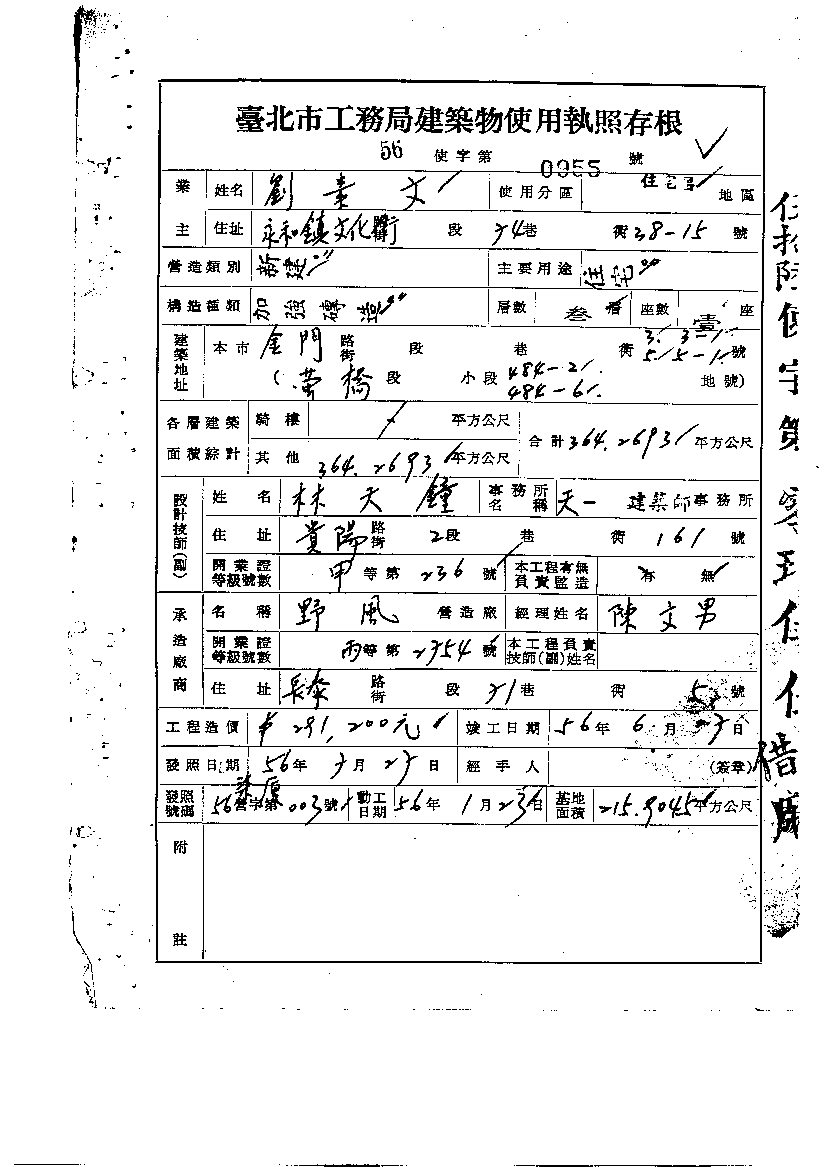 臺北市工務局建築物使用執照存根
56 使字第 0955 號
業主 姓名 劉 文 使用分區 住宅 地區
住址 永和鎮文化街 段 74巷 街38-15 號
營造類別 新建 主要用途 住宅
構造種類 加強磚造 層數 叁層 座數 壹座
建築地址 本市 金門 路街 段 巷 街 3. 3-1. 5. 5-1. 號
(螢橋段 小段 484-2. 484-6. 地號)
各層建築面積綜計 騎樓 平方公尺 合計364.2693平方公尺
其他 364.2693平方公尺
設計技師(副) 姓名 林天鐘 事務所名稱 天一 建築師事務所
住址 貴陽 路街 2段 巷 街 161 號
開業證等級號數 甲等第 236 號 本工程有無負責監造 有 無
承造廠商 名稱 野風 營造廠 經理姓名 陳文男
開業證等級號數 丙等第 2754 號 本工程負責技師(副)姓名
住址 長泰 路街 段 71巷 街 5 號
工程造價 291,200元 竣工日期 56年 6月 27日
發照日期 56年 7月 27日 經手人 (簽章)
發照號碼 56營字第003號 動工日期 56年 1月 23日 基地面積 215.9045平方公尺
附註
伍拾陸使字第零玖伍伍借